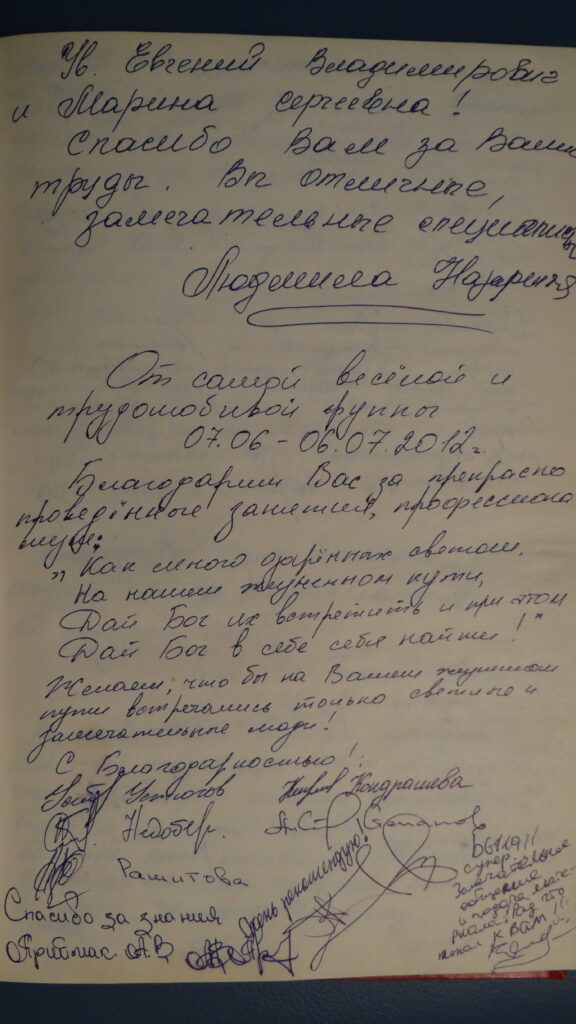 Ув. Евгений Владимирович
и Марина Сергеевна!
Спасибо Вам за Ваши
труды. Вы отличные,
замечательные специалисты
Людмила
От самой весёлой и
трудолюбивой группы
07.06 – 06.07.2012г.
Благодарим Вас за прекрасно
проведённые занятия, профессионализм:
„Как много одарённых светом,
На нашем жизненном пути,
Дай Бог их встретить и при этом
Дай Бог в себе себя найти!"
Желаем, что бы на Вашем жизненном
пути встречались только светлые и
замечательные люди!
С Благодарностью!:
Устюгов Кондрашева
Степанов
Рашитова
Очень рекомендую!
Спасибо за знания
Притмак А.В
Было
супер
Замечательное
общение
и подача мате-
риала! Рад что
попал к Вам!!